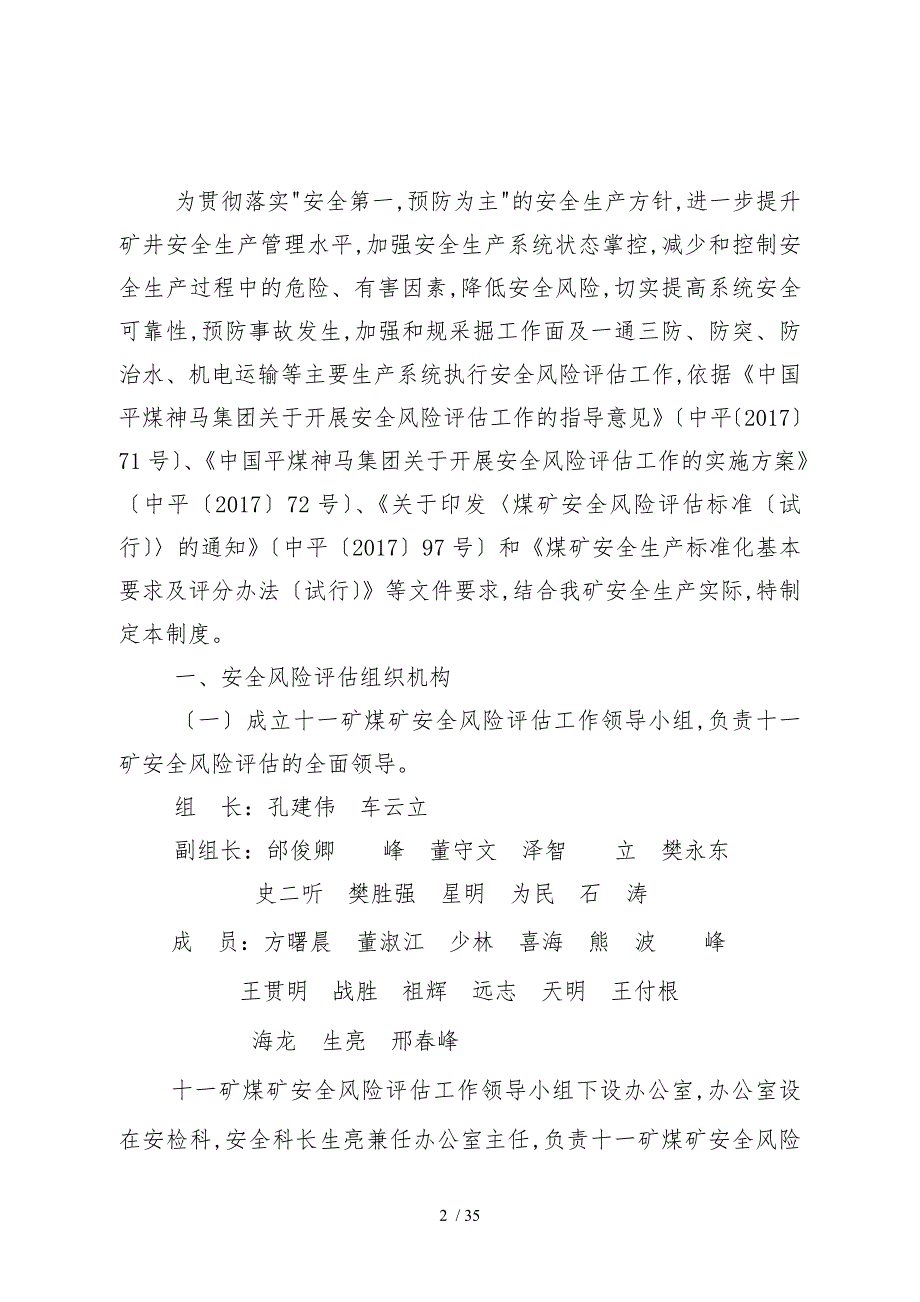 为贯彻落实"安全第一,预防为主"的安全生产方针,进一步提升
矿井安全生产管理水平,加强安全生产系统状态掌控,减少和控制安
全生产过程中的危险、有害因素,降低安全风险,切实提高系统安全
可靠性,预防事故发生,加强和规采掘工作面及一通三防、防突、防
治水、机电运输等主要生产系统执行安全风险评估工作,依据《中国
平煤神马集团关于开展安全风险评估工作的指导意见》〔中平〔2017〕
71 号〕、《中国平煤神马集团关于开展安全风险评估工作的实施方案》
〔中平〔2017〕72 号〕、《关于印发〈煤矿安全风险评估标准〔试
行〕〉的通知》〔中平〔2017〕97 号〕和《煤矿安全生产标准化基本
要求及评分办法〔试行〕》等文件要求,结合我矿安全生产实际,特制
定本制度。
一、安全风险评估组织机构
〔一〕成立十一矿煤矿安全风险评估工作领导小组,负责十一
矿安全风险评估的全面领导。
组　长：孔建伟　车云立
副组长：邰俊卿　　峰　董守文　泽智　　立　樊永东
史二听　樊胜强　星明　为民　石　涛
成　员：方曙晨　董淑江　少林　喜海　熊　波　　峰
王贯明　战胜　祖辉　远志　天明　王付根
海龙　生亮　邢春峰
十一矿煤矿安全风险评估工作领导小组下设办公室,办公室设
在安检科,安全科长生亮兼任办公室主任,负责十一矿煤矿安全风险
2 / 35